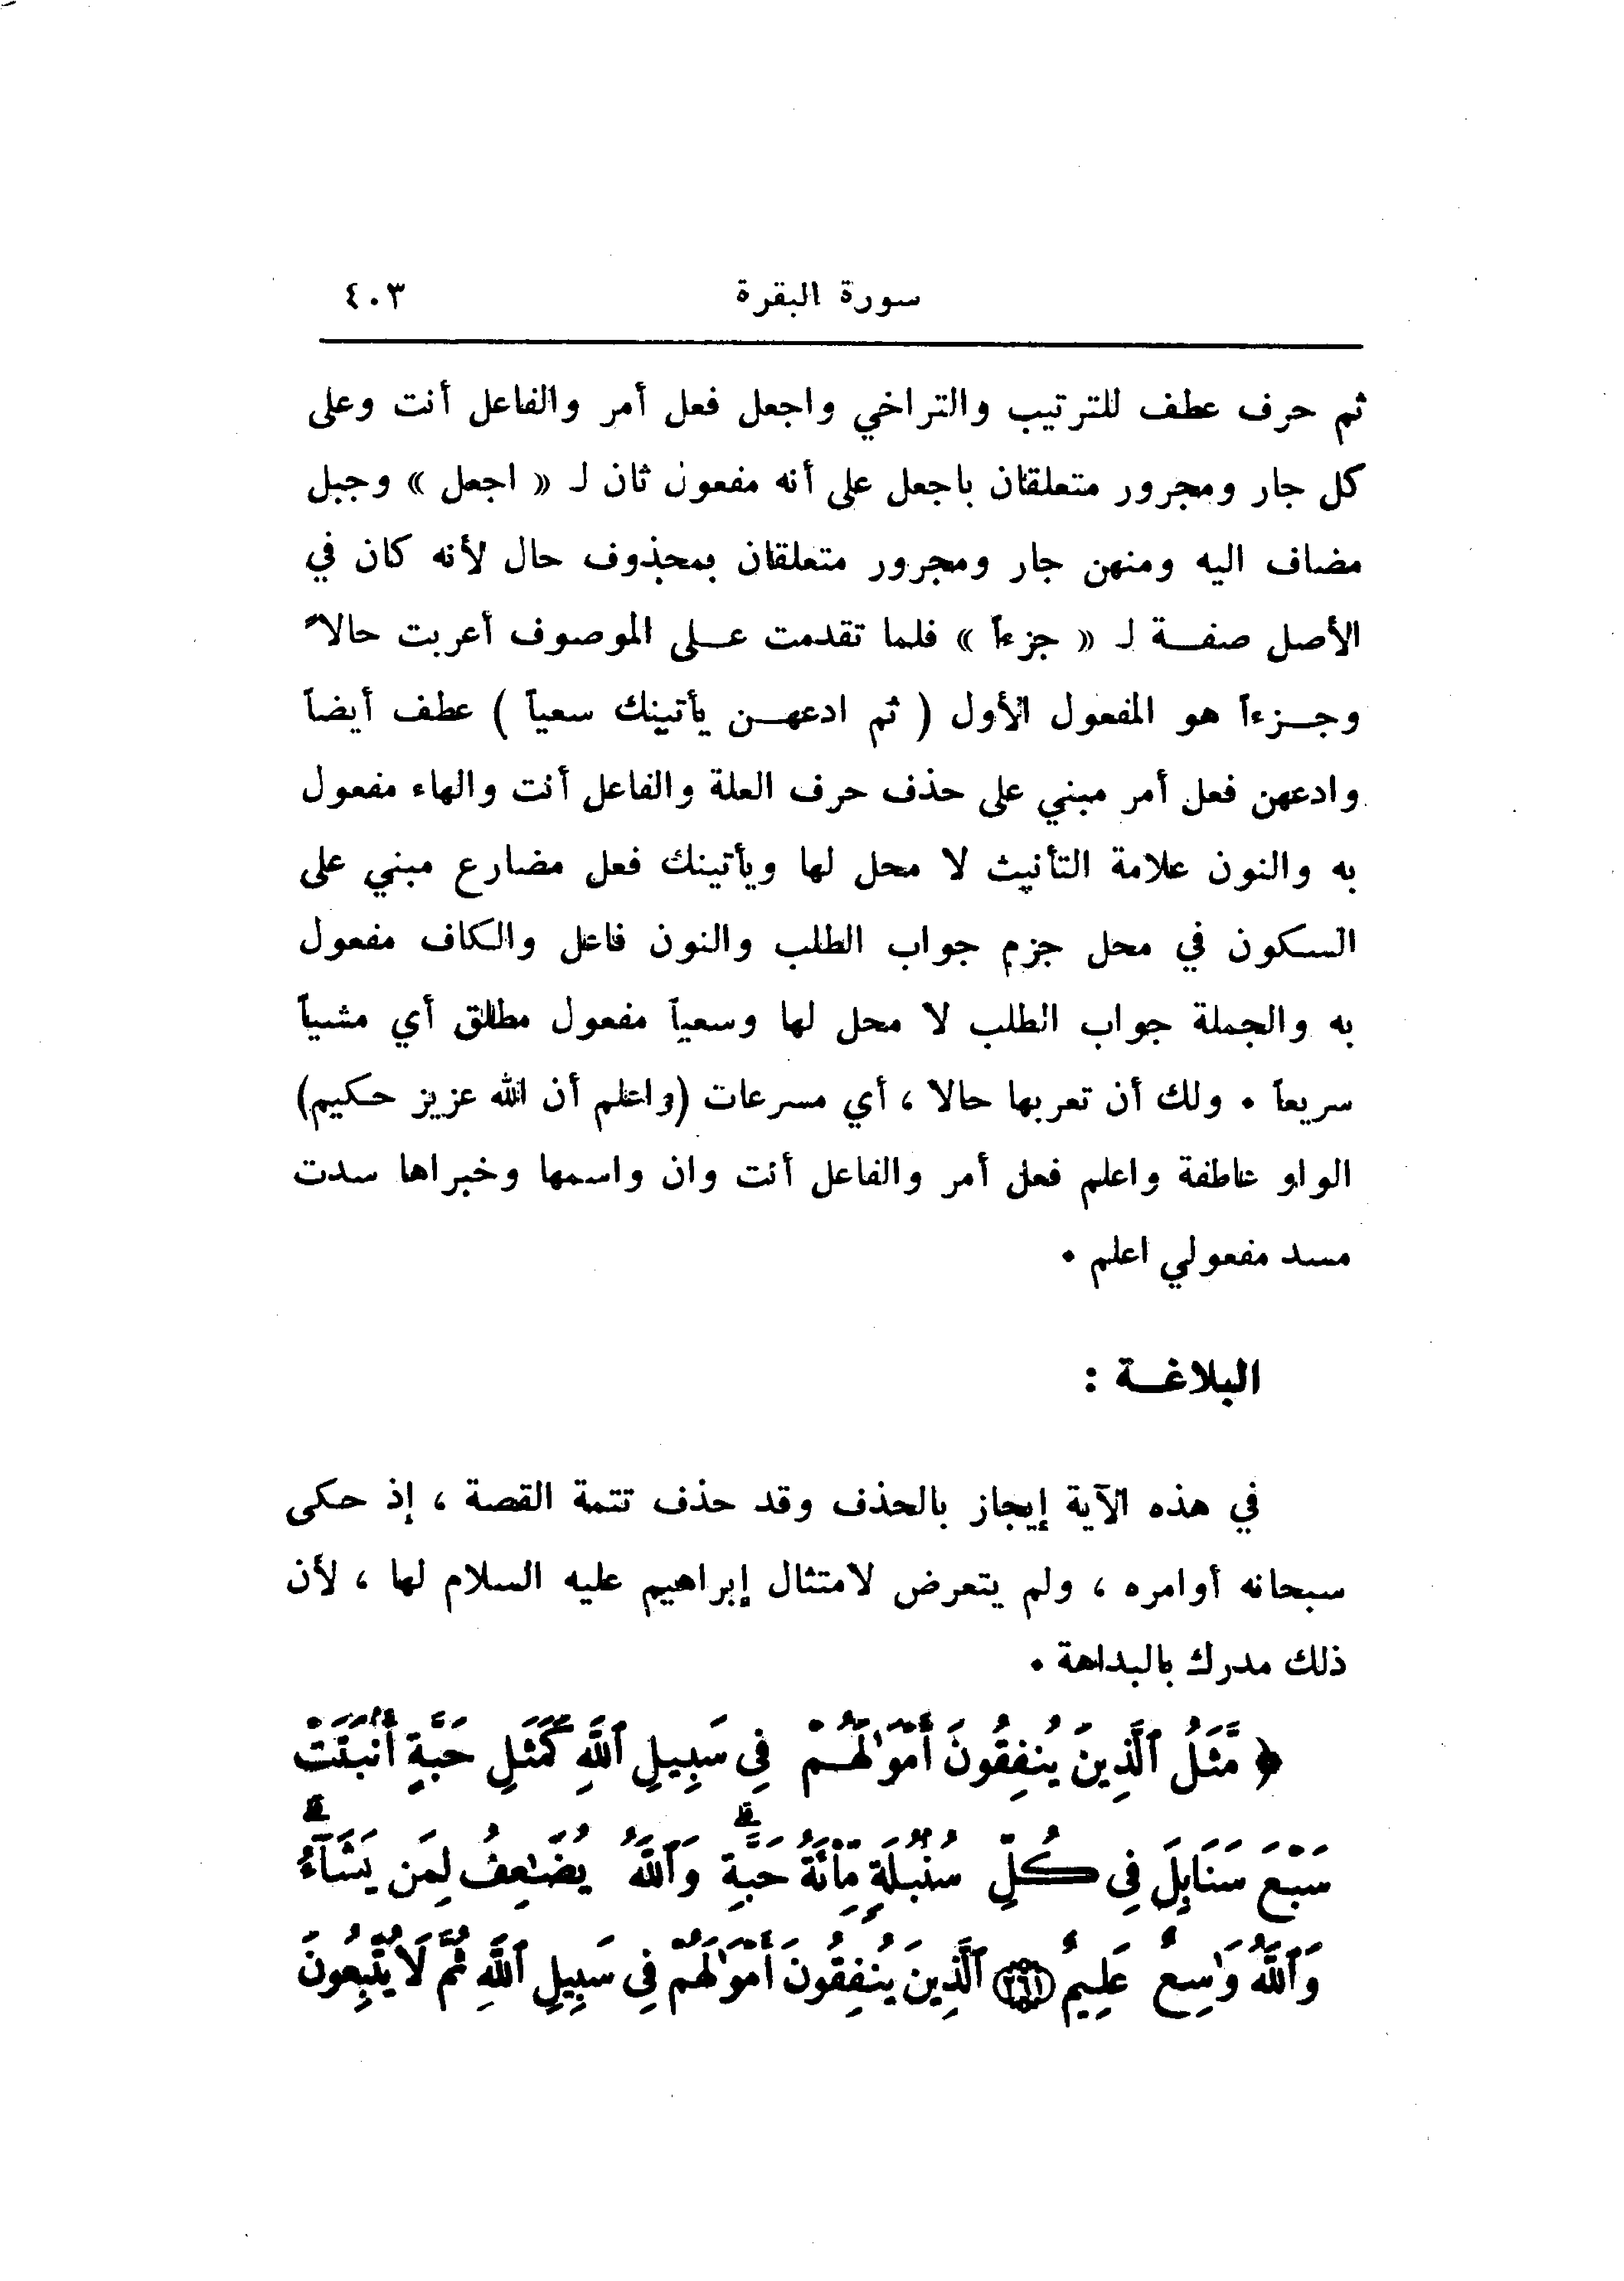 سورة البقرة ٤٠٣
ثم حرف عطف للترتيب والتراخي واجعل فعل أمر والفاعل أنت وعلى
كل جار ومجرور متعلقان باجعل على أنه مفعول ثان لـ « اجعل » وجبل
مضاف اليه ومنهن جار ومجرور متعلقان بمحذوف حال لأنه كان في
الأصل صفة لـ « جزءاً » فلما تقدمت على الموصوف أعربت حالاً
وجزءاً هو المفعول الأول ( ثم ادعهن يأتينك سعياً ) عطف أيضاً
وادعهن فعل أمر مبني على حذف حرف العلة والفاعل أنت والهاء مفعول
به والنون علامة التأنيث لا محل لها ويأتينك فعل مضارع مبني على
السكون في محل جزم جواب الطلب والنون فاعل والكاف مفعول
به والجملة جواب الطلب لا محل لها وسعياً مفعول مطلق أي مشياً
سريعاً . ولك أن تعربها حالا ، أي مسرعات (واعلم أن الله عزيز حكيم)
الواو عاطفة واعلم فعل أمر والفاعل أنت وان واسمها وخبراها سدت
مسد مفعولي اعلم .
البلاغة :
في هذه الآية إيجاز بالحذف وقد حذف تتمة القصة ، إذ حكى
سبحانه أوامره ، ولم يتعرض لامتثال إبراهيم عليه السلام لها ، لأن
ذلك مدرك بالبداهة .
﴿ مَّثَلُ ٱلَّذِينَ يُنفِقُونَ أَمْوَٰلَهُمْ فِى سَبِيلِ ٱللَّهِ كَمَثَلِ حَبَّةٍ أَنۢبَتَتْ
سَبْعَ سَنَابِلَ فِى كُلِّ سُنۢبُلَةٍ مِّاْئَةُ حَبَّةٍ ۗ وَٱللَّهُ يُضَٰعِفُ لِمَن يَشَآءُ ۗ
وَٱللَّهُ وَٰسِعٌ عَلِيمٌ ﴿٢٦١﴾ ٱلَّذِينَ يُنفِقُونَ أَمْوَٰلَهُمْ فِى سَبِيلِ ٱللَّهِ ثُمَّ لَا يُتْبِعُونَ